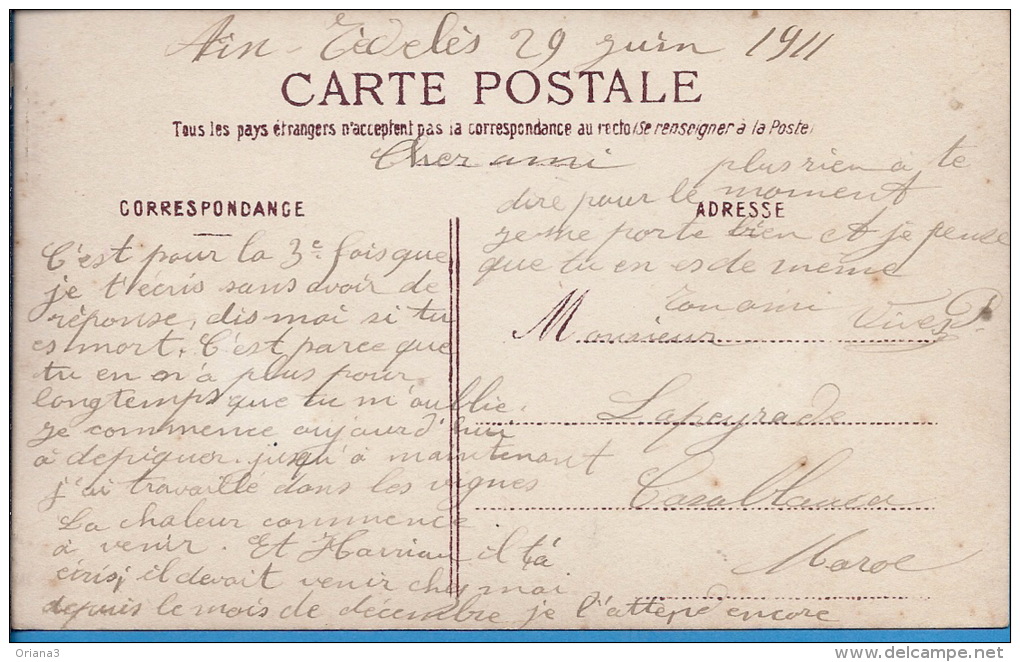 Ain-Tédelès 29 juin 1911
CARTE POSTALE
Tous les pays étrangers n'acceptent pas la correspondance au recto (Se renseigner à la Poste)
Cher ami
CORRESPONDANCE
C'est pour la 3e fois que
je t'écris sans avoir de
réponse, dis moi si tu
es mort. C'est parce que
tu en n'a plus pour
longtemps que tu m'oublie.
je commence aujourd'hui
à dépiquer. jusqu'à maintenant
j'ai travaillé dans les vignes
La chaleur commence
à venir. Et il t'a
écris, il devait venir chez moi
depuis le mois de décembre je l'attend encore
plus rien à te
dire pour le moment
je me porte bien et je pense
que tu en es de même
Ton ami Vives P.
ADRESSE
Monsieur
Lapeyrade
Casablanca
Maroc
Oriana3
www.delcampe.net